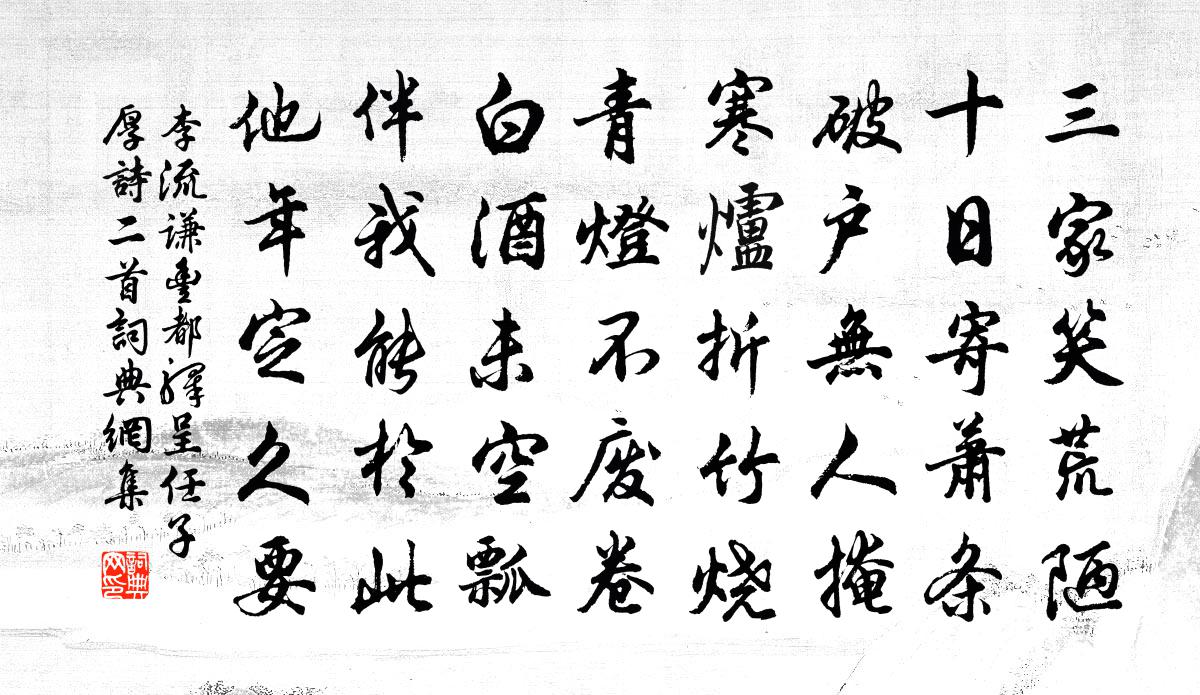 三家笑荒陋
十日寄蕭条
破户無人掩
寒爐折竹烧
青燈不废卷
白酒未空瓢
伴我能於此
他年定久要
李流谦豐都驛呈任子
厚詩二首詞典網集
詞典網印